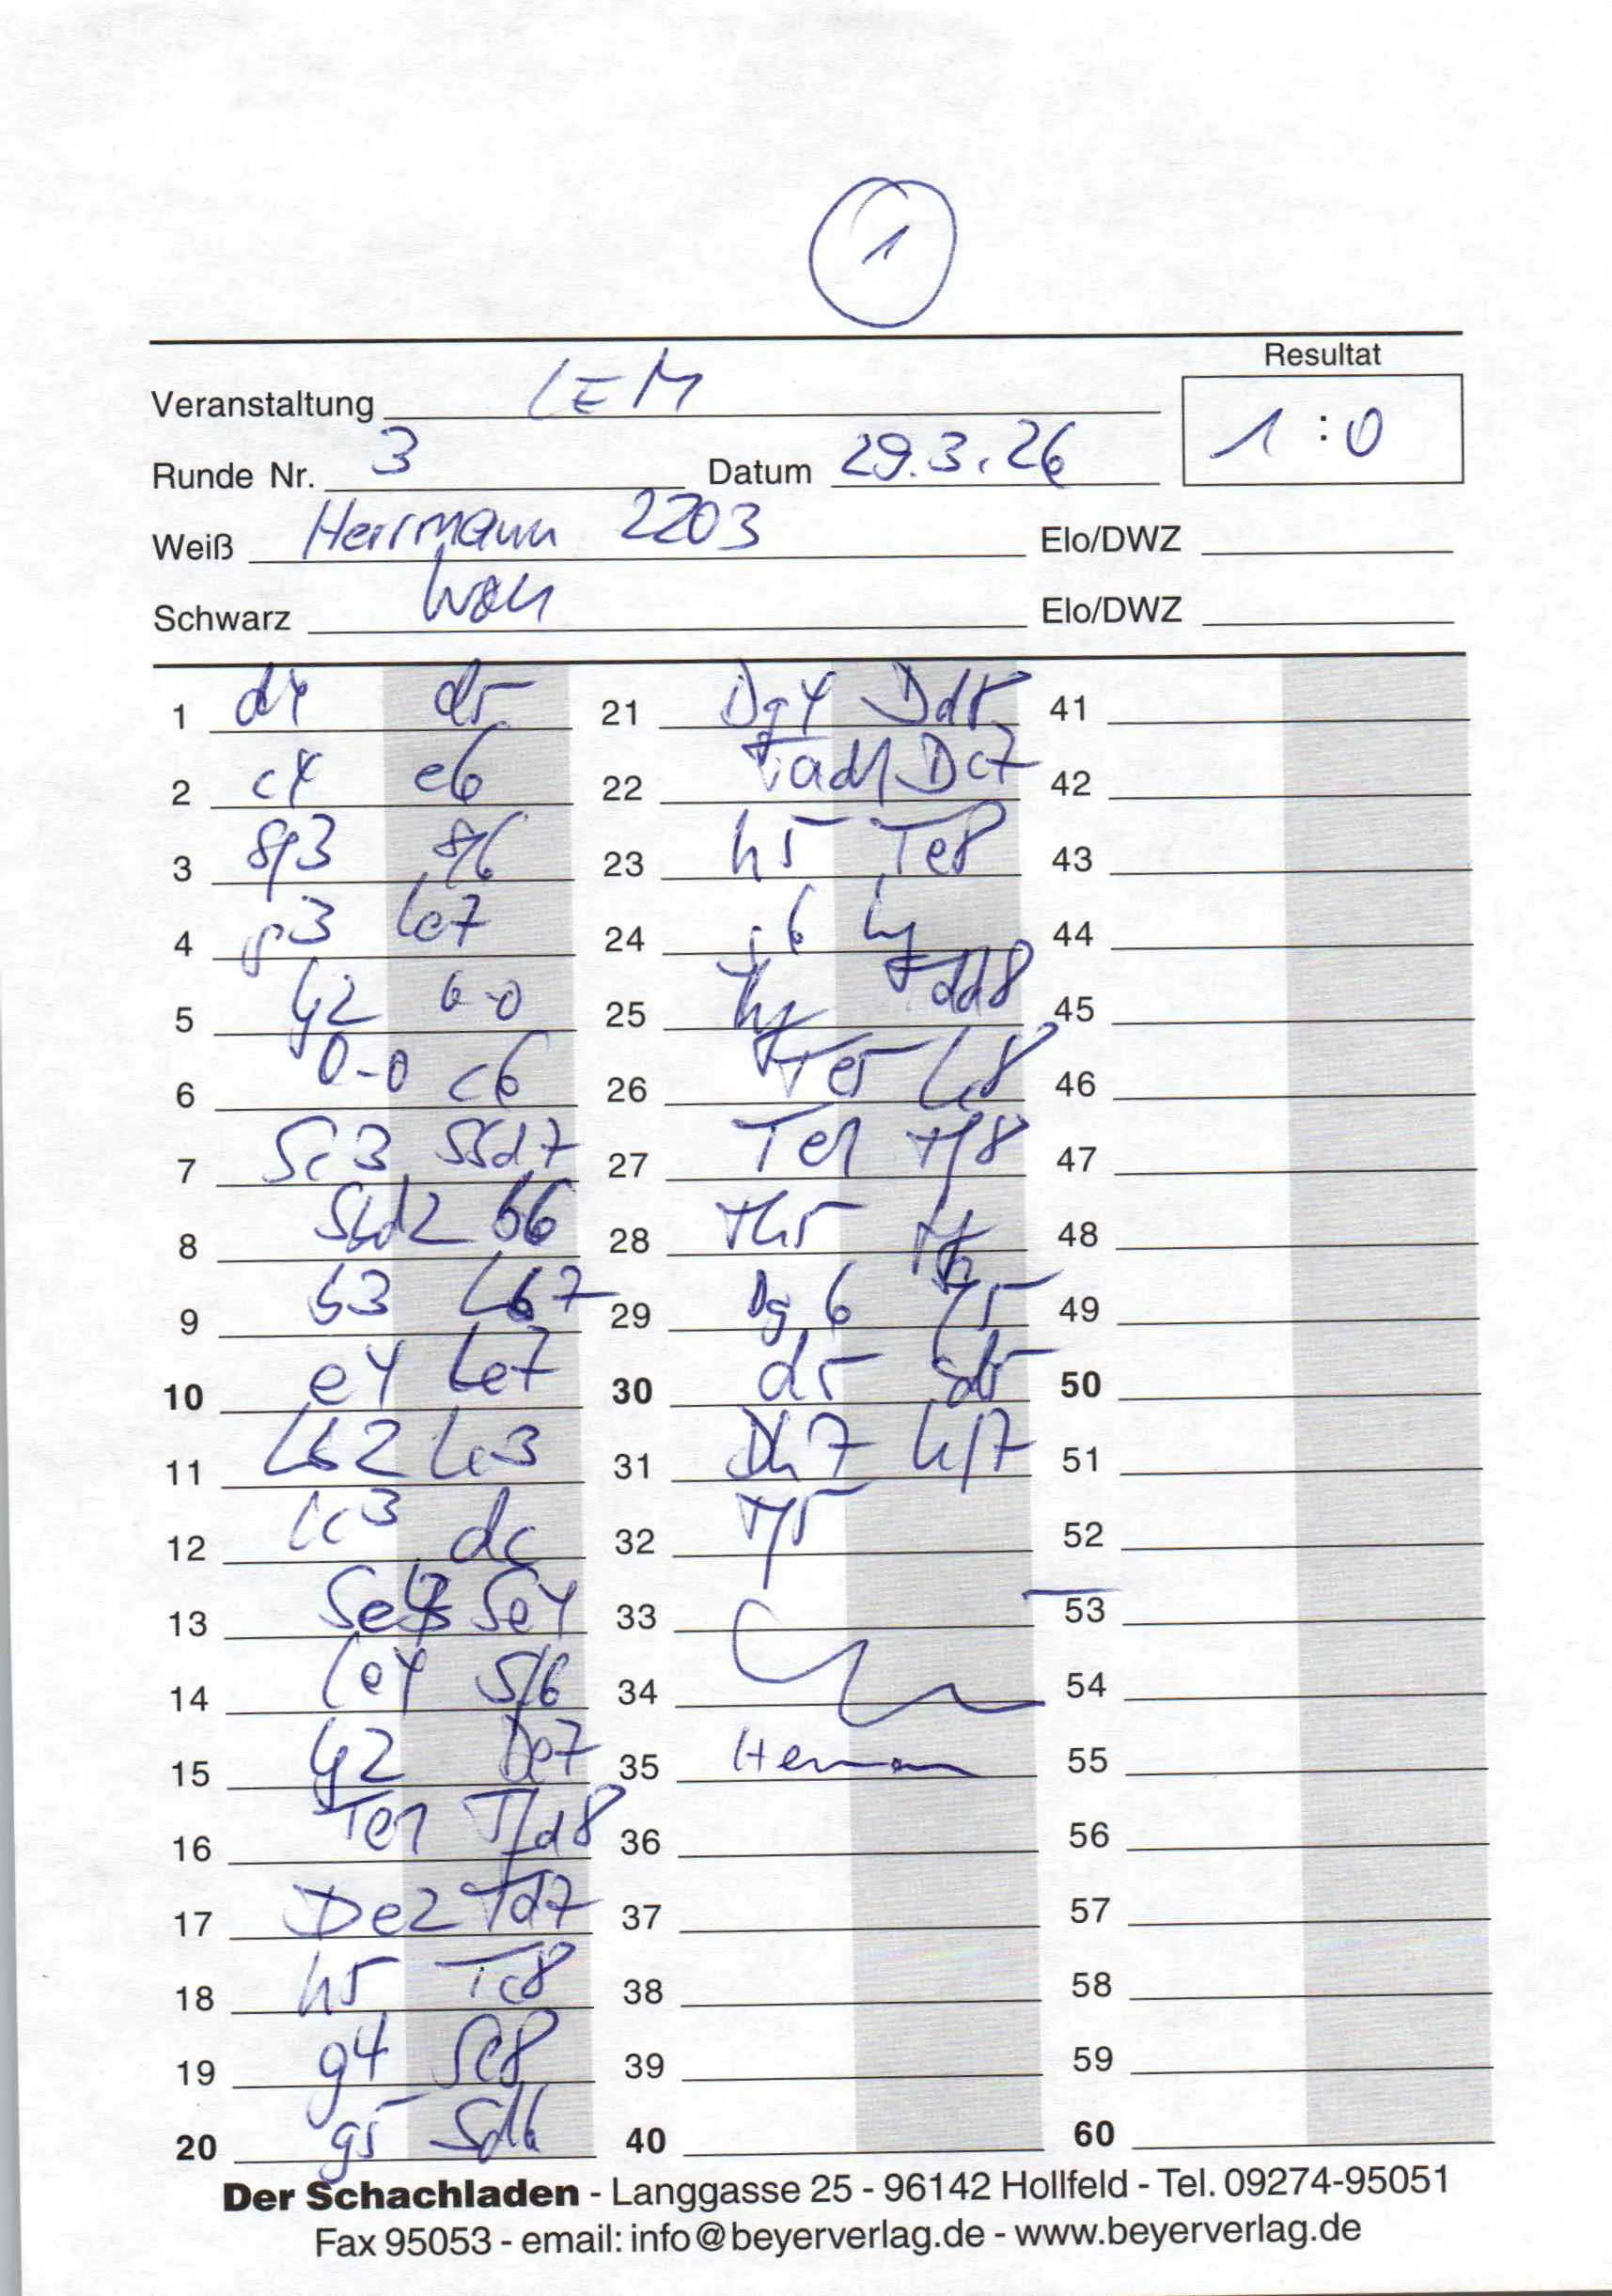 1
Resultat
Veranstaltung LEM
1 : 0
Runde Nr. 3 Datum 29.3.26
Weiß Herrmann 2203 Elo/DWZ
Schwarz Elo/DWZ
1 d4 d5 21 Dg4 Dd8 41
2 c4 e6 22 Tad1 Dc7 42
3 Sf3 Sf6 23 h5 Te8 43
4 g3 Le7 24 g6 hg 44
5 Lg2 0-0 25 hg Tdd8 45
6 0-0 c6 26 Te5 Lc8 46
7 Sc3 Sbd7 27 Te1 Tf8 47
8 Sbd2 b6 28 Th5 48
9 b3 Lb7 29 Dg6 f5 49
10 e4 Le7 30 d5 50
11 Lb2 Lc3 31 Dh7 Kf7 51
12 Lc3 dc 32 Tf5 52
13 Se4 Se4 33 53
14 Le4 Sf6 34 54
15 Lg2 De7 35 55
16 Te1 Tfd8 36 56
17 De2 Td7 37 57
18 h5 Tc8 38 58
19 g4 Se8 39 59
20 g5 Sd6 40 60
Der Schachladen - Langgasse 25 - 96142 Hollfeld - Tel. 09274-95051
Fax 95053 - email: info@beyerverlag.de - www.beyerverlag.de